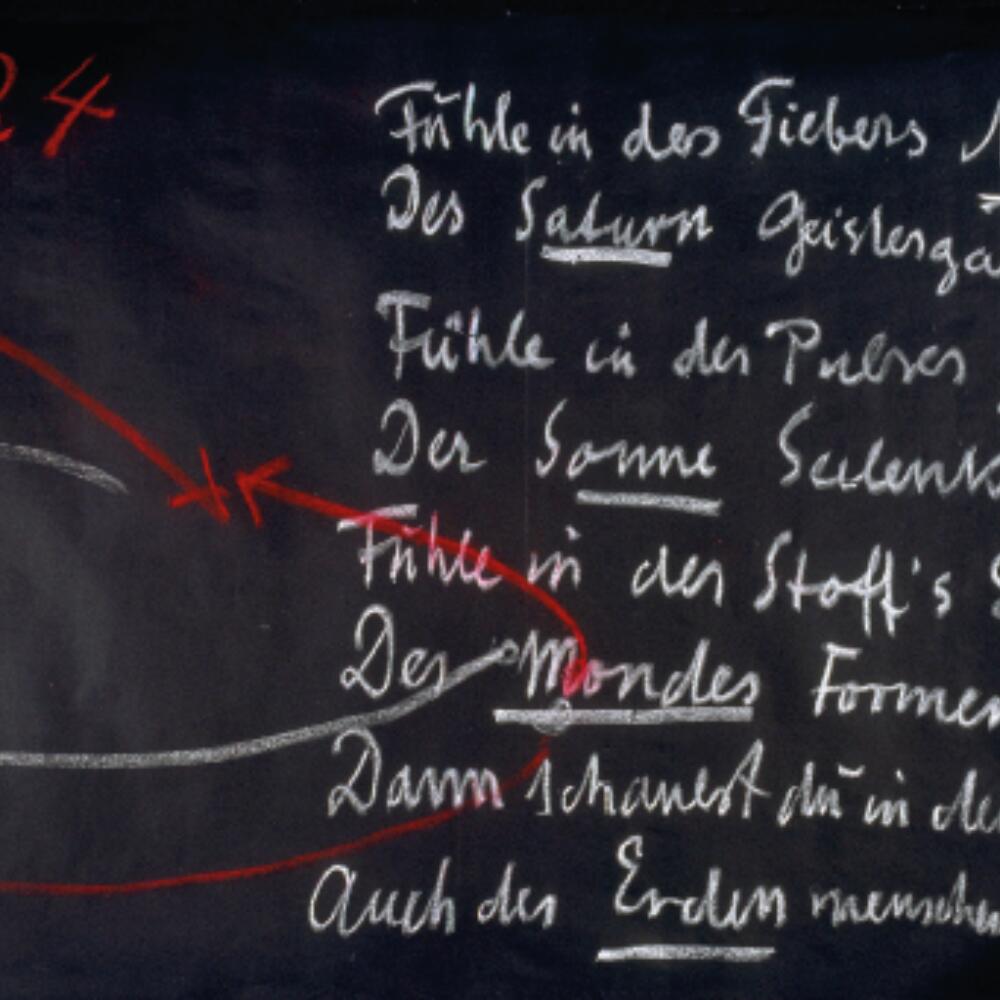 24
Fühle in des Fiebers
Des Saturn Geistesga
Fühle in des Pulses
Der Sonne Seelenk
Fühle in des Stoff's
Des Mondes Formen
Dann schauest du in de
Auch des Erdenmenschen